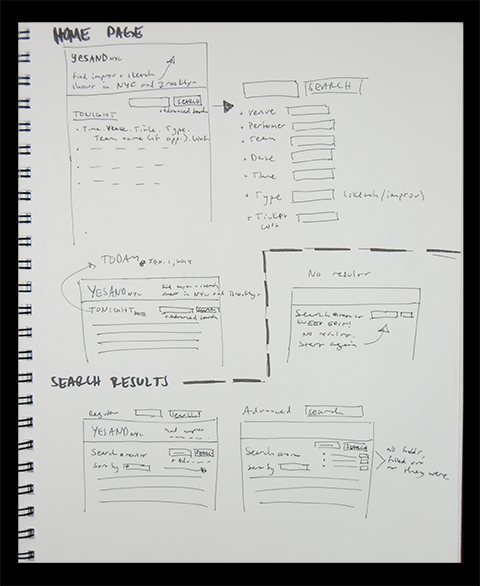 HOME PAGE
YESAND NYC
find improv + sketch
shows in NYC and Brooklyn
SEARCH
+ Advanced Search
TONIGHT
• Time. Venue. Title. Type.
Team name (if app.). Link
SEARCH
• Venue
• Performer
• Team
• Date
• Time
• Type (sketch/improv)
• Ticket
cost
TODAY
JAN. 1, 2014
YESAND NYC
find improv + sketch
shows in NYC and Brooklyn
TONIGHT
Search
+ Advanced Search
No results
Search
SWEEP EDIT!
No results.
Start again
SEARCH RESULTS
Regular
Search
Advanced
Search
YESAND NYC
find improv
Search
+ Adv
Sort by
Search
Search
Sort by
all fields,
filled out
as they were